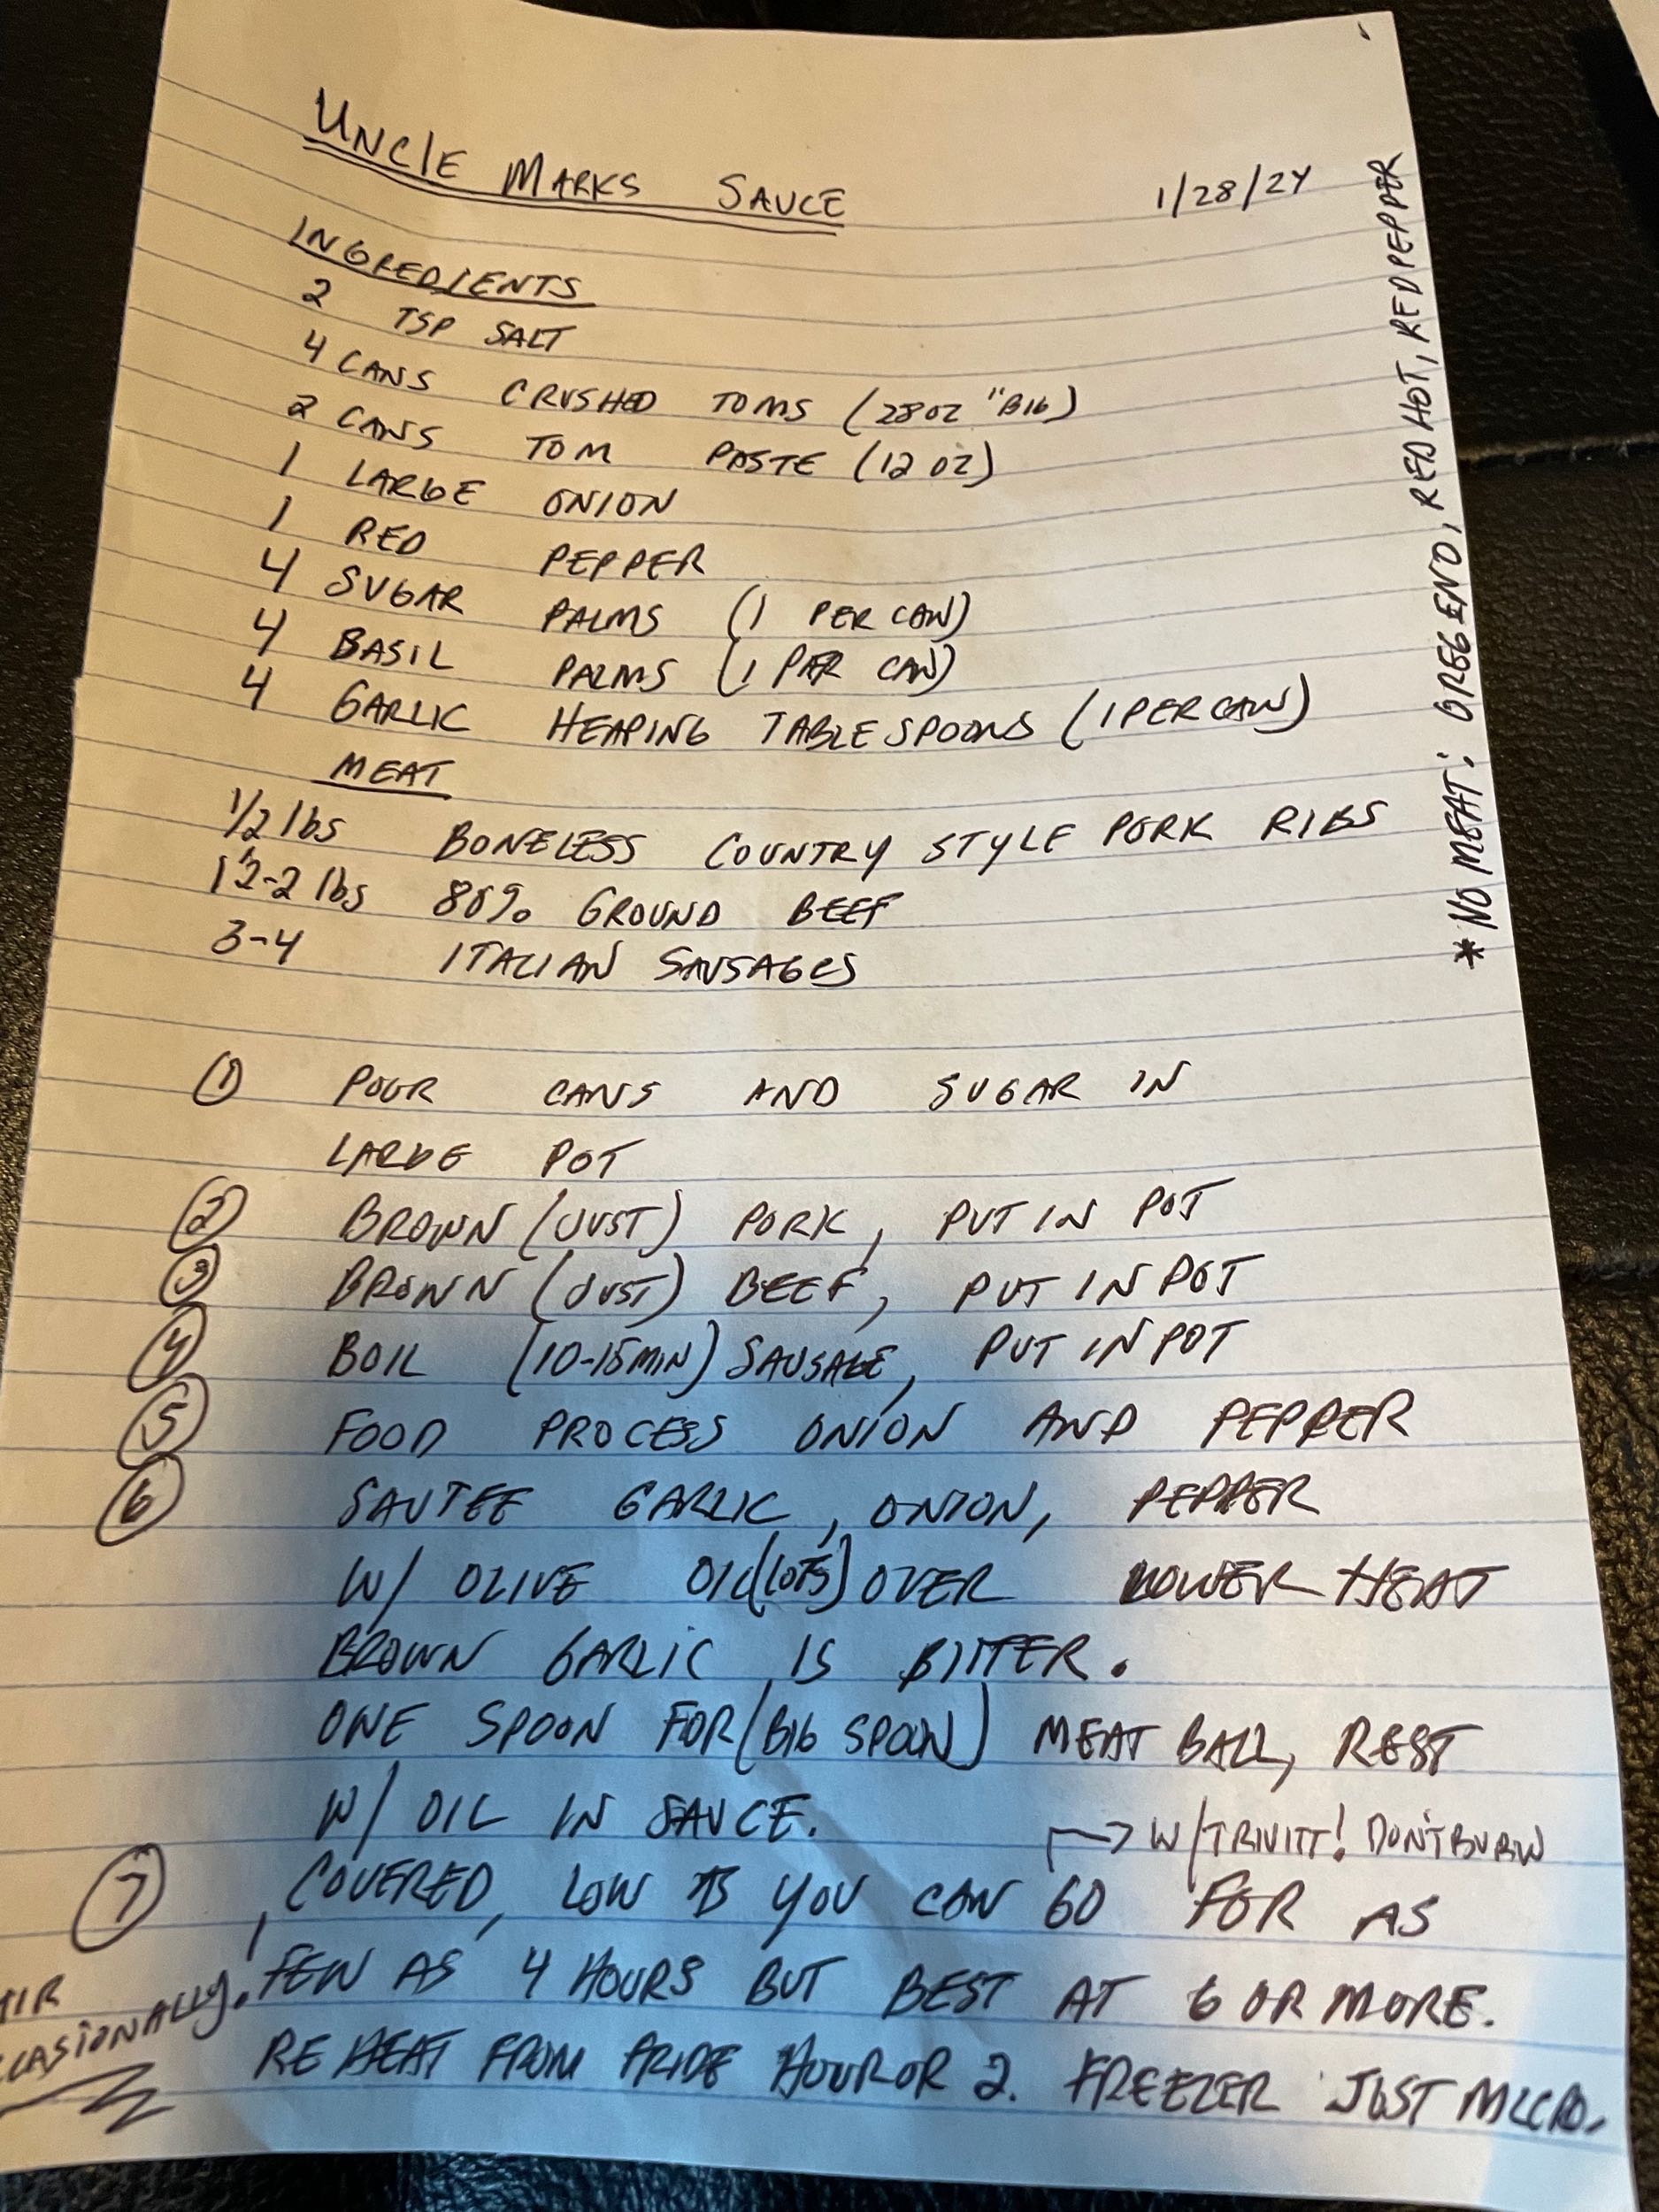 UNCLE MARKS SAUCE 1/28/24
INGREDIENTS
2 TSP SALT
4 CANS CRUSHED TOMS (28 OZ "BIG)
2 CANS TOM PASTE (12 OZ)
1 LARGE ONION
1 RED PEPPER
4 SUGAR PALMS (1 PER CAN)
4 BASIL PALMS (1 PER CAN)
4 GARLIC HEAPING TABLESPOONS (1 PER CAN)
MEAT
1/2 lbs BONELESS COUNTRY STYLE PORK RIBS
80% GROUND BEEF
3-4 ITALIAN SAUSAGES
1 POUR CANS AND SUGAR IN
LARGE POT
2 BROWN (JUST) PORK, PUT IN POT
3 BROWN (JUST) BEEF, PUT IN POT
4 BOIL (10-15 MIN) SAUSAGE, PUT IN POT
5 FOOD PROCESS ONION AND PEPPER
6 SAUTEE GARLIC, ONION, PEPPER
W/ OLIVE OIL (LOTS) OVER LOWER HEAT
BROWN GARLIC IS BITTER.
ONE SPOON FOR (BIG SPOON) MEAT BALL, REST
W/ OIL IN SAUCE.
→ W/TRIVITT! DON'T BURN
7 COVERED, LOW AS YOU CAN GO FOR AS
FEW AS 4 HOURS BUT BEST AT 6 OR MORE.
REHEAT FROM FRIDE HOUR OR 2. FREEZER JUST MICRO.
* NO MEAT: OREG END, RED HOT, RED PEPPER